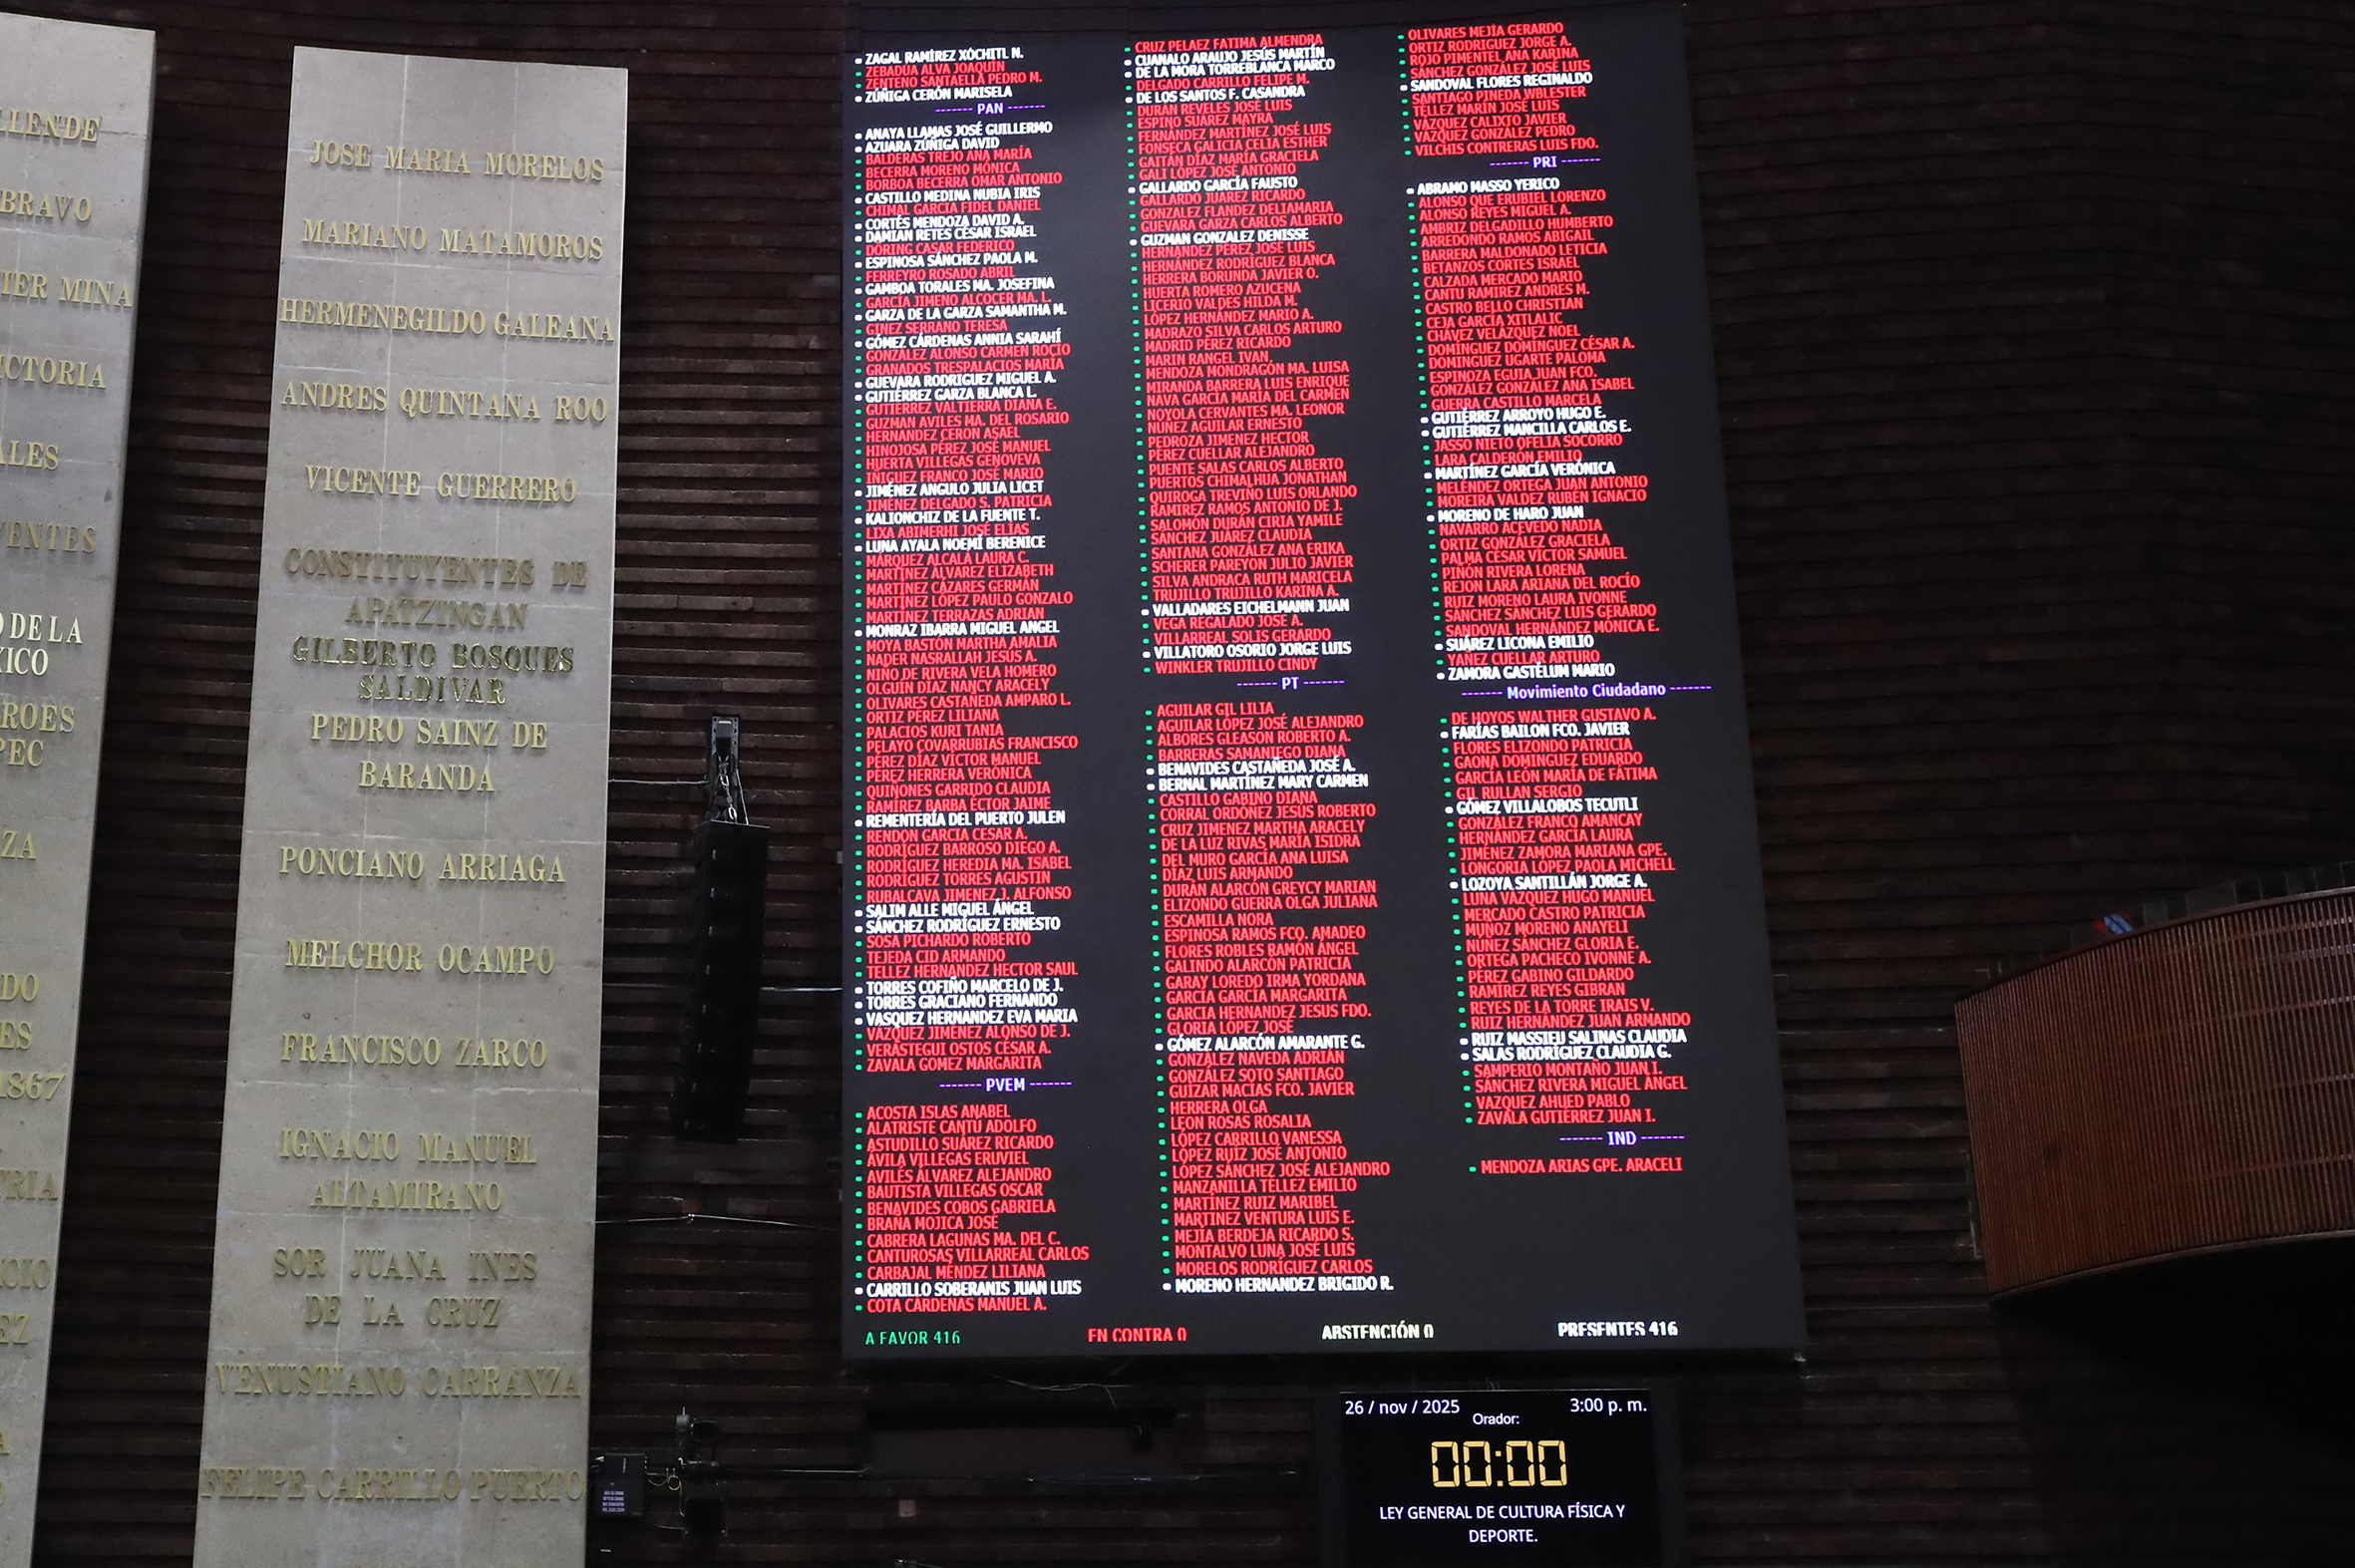 LLENDE
BRAVO
IER MINA
ICTORIA
ALES
YENTES
O DE LA
XICO
ROES
PEC
ZA
DO
ES
1867
TRIA
CIO
EZ
A
JOSE MARIA MORELOS
MARIANO MATAMOROS
HERMENEGILDO GALEANA
ANDRES QUINTANA ROO
VICENTE GUERRERO
CONSTITUYENTES DE
APATZINGAN
GILBERTO BOSQUES
SALDIVAR
PEDRO SAINZ DE
BARANDA
PONCIANO ARRIAGA
MELCHOR OCAMPO
FRANCISCO ZARCO
IGNACIO MANUEL
ALTAMIRANO
SOR JUANA INES
DE LA CRUZ
VENUSTIANO CARRANZA
FELIPE CARRILLO PUERTO
ZAGAL RAMÍREZ XÓCHITL N.
ZEBADÚA ALVA JOAQUÍN
ZENTENO SANTAELLA PEDRO M.
ZÚÑIGA CERÓN MARISELA
------- PAN -------
ANAYA LLAMAS JOSÉ GUILLERMO
AZUARA ZÚÑIGA DAVID
BALDERAS TREJO ANA MARÍA
BECERRA MORENO MÓNICA
BORBOA BECERRA OMAR ANTONIO
CASTILLO MEDINA NUBIA IRIS
CHIMAL GARCÍA FIDEL DANIEL
CORTÉS MENDOZA DAVID A.
DAMIAN RETES CÉSAR ISRAEL
DORING CASAR FEDERICO
ESPINOSA SÁNCHEZ PAOLA M.
FERREYRO ROSADO ABRIL
GAMBOA TORALES MA. JOSEFINA
GARCÍA JIMENO ALCOCER MA. L.
GARZA DE LA GARZA SAMANTHA M.
GINEZ SERRANO TERESA
GÓMEZ CÁRDENAS ANNIA SARAHÍ
GONZÁLEZ ALONSO CARMEN ROCÍO
GRANADOS TRESPALACIOS MARÍA
GUEVARA RODRIGUEZ MIGUEL A.
GUTIÉRREZ GARZA BLANCA L.
GUTIÉRREZ VALTIERRA DIANA E.
GUZMAN AVILES MA. DEL ROSARIO
HERNANDEZ CERON ASAEL
HINOJOSA PÉREZ JOSÉ MANUEL
HUERTA VILLEGAS GENOVEVA
IÑIGUEZ FRANCO JOSÉ MARIO
JIMÉNEZ ANGULO JULIA LICET
JIMÉNEZ DELGADO S. PATRICIA
KALIONCHIZ DE LA FUENTE T.
LIXA ABIMERHI JOSÉ ELÍAS
LUNA AYALA NOEMÍ BERENICE
MÁRQUEZ ALCALÁ LAURA C.
MARTÍNEZ ÁLVAREZ ELIZABETH
MARTÍNEZ CÁZARES GERMÁN
MARTÍNEZ LÓPEZ PAULO GONZALO
MARTÍNEZ TERRAZAS ADRIAN
MONRAZ IBARRA MIGUEL ANGEL
MOYA BASTÓN MARTHA AMALIA
NADER NASRALLAH JESÚS A.
NIÑO DE RIVERA VELA HOMERO
OLGUÍN DÍAZ NANCY ARACELY
OLIVARES CASTAÑEDA AMPARO L.
ORTIZ PÉREZ LILIANA
PALACIOS KURI TANIA
PELAYO COVARRUBIAS FRANCISCO
PÉREZ DÍAZ VÍCTOR MANUEL
PÉREZ HERRERA VERÓNICA
QUIÑONES GARRIDO CLAUDIA
RAMÍREZ BARBA ÉCTOR JAIME
REMENTERÍA DEL PUERTO JULEN
RENDON GARCIA CESAR A.
RODRÍGUEZ BARROSO DIEGO A.
RODRÍGUEZ HEREDIA MA. ISABEL
RODRÍGUEZ TORRES AGUSTIN
RUBALCAVA JIMENEZ J. ALFONSO
SALIM ALLE MIGUEL ÁNGEL
SÁNCHEZ RODRÍGUEZ ERNESTO
SOSA PICHARDO ROBERTO
TEJEDA CID ARMANDO
TELLEZ HERNANDEZ HECTOR SAUL
TORRES COFIÑO MARCELO DE J.
TORRES GRACIANO FERNANDO
VASQUEZ HERNANDEZ EVA MARIA
VAZQUEZ JIMENEZ ALONSO DE J.
VERÁSTEGUI OSTOS CÉSAR A.
ZAVALA GÓMEZ MARGARITA
------- PVEM -------
ACOSTA ISLAS ANABEL
ALATRISTE CANTÚ ADOLFO
ASTUDILLO SUÁREZ RICARDO
ÁVILA VILLEGAS ERUVIEL
AVILÉS ÁLVAREZ ALEJANDRO
BAUTISTA VILLEGAS OSCAR
BENAVIDES COBOS GABRIELA
BRAÑA MOJICA JOSÉ
CABRERA LAGUNAS MA. DEL C.
CANTUROSAS VILLARREAL CARLOS
CARBAJAL MÉNDEZ LILIANA
CARRILLO SOBERANIS JUAN LUIS
COTA CÁRDENAS MANUEL A.
CRUZ PELAEZ FATIMA ALMENDRA
CUANALO ARAUJO JESÚS MARTÍN
DE LA MORA TORREBLANCA MARCO
DELGADO CARRILLO FELIPE M.
DE LOS SANTOS F. CASANDRA
DURÁN REVELES JOSÉ LUIS
ESPINO SUÁREZ MAYRA
FERNÁNDEZ MARTÍNEZ JOSÉ LUIS
FONSECA GALICIA CELIA ESTHER
GAITÁN DÍAZ MARÍA GRACIELA
GALI LÓPEZ JOSÉ ANTONIO
GALLARDO GARCÍA FAUSTO
GALLARDO JUÁREZ RICARDO
GONZALEZ FLANDEZ DELIAMARIA
GUEVARA GARZA CARLOS ALBERTO
GUZMAN GONZALEZ DENISSE
HERNÁNDEZ PÉREZ JOSÉ LUIS
HERNÁNDEZ RODRÍGUEZ BLANCA
HERRERA BORUNDA JAVIER O.
HUERTA ROMERO AZUCENA
LICERIO VALDES HILDA M.
LÓPEZ HERNÁNDEZ MARIO A.
MADRAZO SILVA CARLOS ARTURO
MADRID PÉREZ RICARDO
MARIN RANGEL IVAN
MENDOZA MONDRAGÓN MA. LUISA
MIRANDA BARRERA LUIS ENRIQUE
NAVA GARCÍA MARÍA DEL CARMEN
NOYOLA CERVANTES MA. LEONOR
NÚÑEZ AGUILAR ERNESTO
PEDROZA JIMENEZ HECTOR
PÉREZ CUÉLLAR ALEJANDRO
PUENTE SALAS CARLOS ALBERTO
PUERTOS CHIMALHUA JONATHAN
QUIROGA TREVIÑO LUIS ORLANDO
RAMIREZ RAMOS ANTONIO DE J.
SALOMÓN DURÁN CIRIA YAMILE
SÁNCHEZ JUÁREZ CLAUDIA
SANTANA GONZÁLEZ ANA ERIKA
SCHERER PAREYON JULIO JAVIER
SILVA ANDRACA RUTH MARICELA
TRUJILLO TRUJILLO KARINA A.
VALLADARES EICHELMANN JUAN
VEGA REGALADO JOSE A.
VILLARREAL SOLIS GERARDO
VILLATORO OSORIO JORGE LUIS
WINKLER TRUJILLO CINDY
------- PT -------
AGUILAR GIL LILIA
AGUILAR LÓPEZ JOSÉ ALEJANDRO
ALBORES GLEASON ROBERTO A.
BARRERAS SAMANIEGO DIANA
BENAVIDES CASTAÑEDA JOSÉ A.
BERNAL MARTÍNEZ MARY CARMEN
CASTILLO GABINO DIANA
CORRAL ORDÓÑEZ JESÚS ROBERTO
CRUZ JIMENEZ MARTHA ARACELY
DE LA LUZ RIVAS MARIA ISIDRA
DEL MURO GARCÍA ANA LUISA
DÍAZ LUIS ARMANDO
DURÁN ALARCÓN GREYCY MARIAN
ELIZONDO GUERRA OLGA JULIANA
ESCAMILLA NORA
ESPINOSA RAMOS FCO. AMADEO
FLORES ROBLES RAMÓN ÁNGEL
GALINDO ALARCÓN PATRICIA
GARAY LOREDO IRMA YORDANA
GARCÍA GARCÍA MARGARITA
GARCIA HERNANDEZ JESUS FDO.
GLORIA LÓPEZ JOSÉ
GÓMEZ ALARCÓN AMARANTE G.
GONZÁLEZ NAVEDA ADRIÁN
GONZÁLEZ SOTO SANTIAGO
GUÍZAR MACÍAS FCO. JAVIER
HERRERA OLGA
LEON ROSAS ROSALIA
LÓPEZ CARRILLO VANESSA
LÓPEZ RUIZ JOSÉ ANTONIO
LÓPEZ SÁNCHEZ JOSÉ ALEJANDRO
MANZANILLA TÉLLEZ EMILIO
MARTÍNEZ RUIZ MARIBEL
MARTÍNEZ VENTURA LUIS E.
MEJÍA BERDEJA RICARDO S.
MONTALVO LUNA JOSÉ LUIS
MORELOS RODRÍGUEZ CARLOS
MORENO HERNANDEZ BRIGIDO R.
OLIVARES MEJÍA GERARDO
ORTIZ RODRIGUEZ JORGE A.
ROJO PIMENTEL ANA KARINA
SÁNCHEZ GONZÁLEZ JOSÉ LUIS
SANDOVAL FLORES REGINALDO
SANTIAGO PINEDA WBLESTER
TÉLLEZ MARÍN JOSÉ LUIS
VÁZQUEZ CALIXTO JAVIER
VÁZQUEZ GONZÁLEZ PEDRO
VILCHIS CONTRERAS LUIS FDO.
------- PRI -------
ABRAMO MASSO YERICO
ALONSO QUE ERUBIEL LORENZO
ALONSO REYES MIGUEL A.
AMBRIZ DELGADILLO HUMBERTO
ARREDONDO RAMOS ABIGAIL
BARRERA MALDONADO LETICIA
BETANZOS CORTÉS ISRAEL
CALZADA MERCADO MARIO
CANTU RAMIREZ ANDRES M.
CASTRO BELLO CHRISTIAN
CEJA GARCÍA XITLALIC
CHÁVEZ VELÁZQUEZ NOEL
DOMÍNGUEZ DOMÍNGUEZ CÉSAR A.
DOMÍNGUEZ UGARTE PALOMA
ESPINOZA EGUIA JUAN FCO.
GONZÁLEZ GONZÁLEZ ANA ISABEL
GUERRA CASTILLO MARCELA
GUTIÉRREZ ARROYO HUGO E.
GUTIÉRREZ MANCILLA CARLOS E.
JASSO NIETO OFELIA SOCORRO
LARA CALDERÓN EMILIO
MARTÍNEZ GARCÍA VERÓNICA
MELÉNDEZ ORTEGA JUAN ANTONIO
MOREIRA VALDEZ RUBÉN IGNACIO
MORENO DE HARO JUAN
NAVARRO ACEVEDO NADIA
ORTIZ GONZÁLEZ GRACIELA
PALMA CÉSAR VÍCTOR SAMUEL
PIÑÓN RIVERA LORENA
REJÓN LARA ARIANA DEL ROCÍO
RUIZ MORENO LAURA IVONNE
SÁNCHEZ SÁNCHEZ LUIS GERARDO
SANDOVAL HERNÁNDEZ MÓNICA E.
SUÁREZ LICONA EMILIO
YÁÑEZ CUELLAR ARTURO
ZAMORA GASTÉLUM MARIO
------- Movimiento Ciudadano -------
DE HOYOS WALTHER GUSTAVO A.
FARÍAS BAILON FCO. JAVIER
FLORES ELIZONDO PATRICIA
GAONA DOMÍNGUEZ EDUARDO
GARCÍA LEÓN MARÍA DE FÁTIMA
GIL RULLAN SERGIO
GÓMEZ VILLALOBOS TECUTLI
GONZÁLEZ FRANCO AMANCAY
HERNÁNDEZ GARCÍA LAURA
JIMÉNEZ ZAMORA MARIANA GPE.
LONGORIA LÓPEZ PAOLA MICHELL
LOZOYA SANTILLÁN JORGE A.
LUNA VÁZQUEZ HUGO MANUEL
MERCADO CASTRO PATRICIA
MUÑOZ MORENO ANAYELI
NÚÑEZ SÁNCHEZ GLORIA E.
ORTEGA PACHECO IVONNE A.
PÉREZ GABINO GILDARDO
RAMÍREZ REYES GIBRAN
REYES DE LA TORRE IRAIS V.
RUIZ HERNÁNDEZ JUAN ARMANDO
RUIZ MASSIEU SALINAS CLAUDIA
SALAS RODRÍGUEZ CLAUDIA G.
SAMPERIO MONTAÑO JUAN I.
SÁNCHEZ RIVERA MIGUEL ÁNGEL
VAZQUEZ AHUED PABLO
ZAVALA GUTIÉRREZ JUAN I.
------- IND -------
MENDOZA ARIAS GPE. ARACELI
A FAVOR 416
EN CONTRA 0
ABSTENCIÓN 0
PRESENTES 416
26 / nov / 2025
3:00 p. m.
Orador:
00:00
LEY GENERAL DE CULTURA FÍSICA Y
DEPORTE.